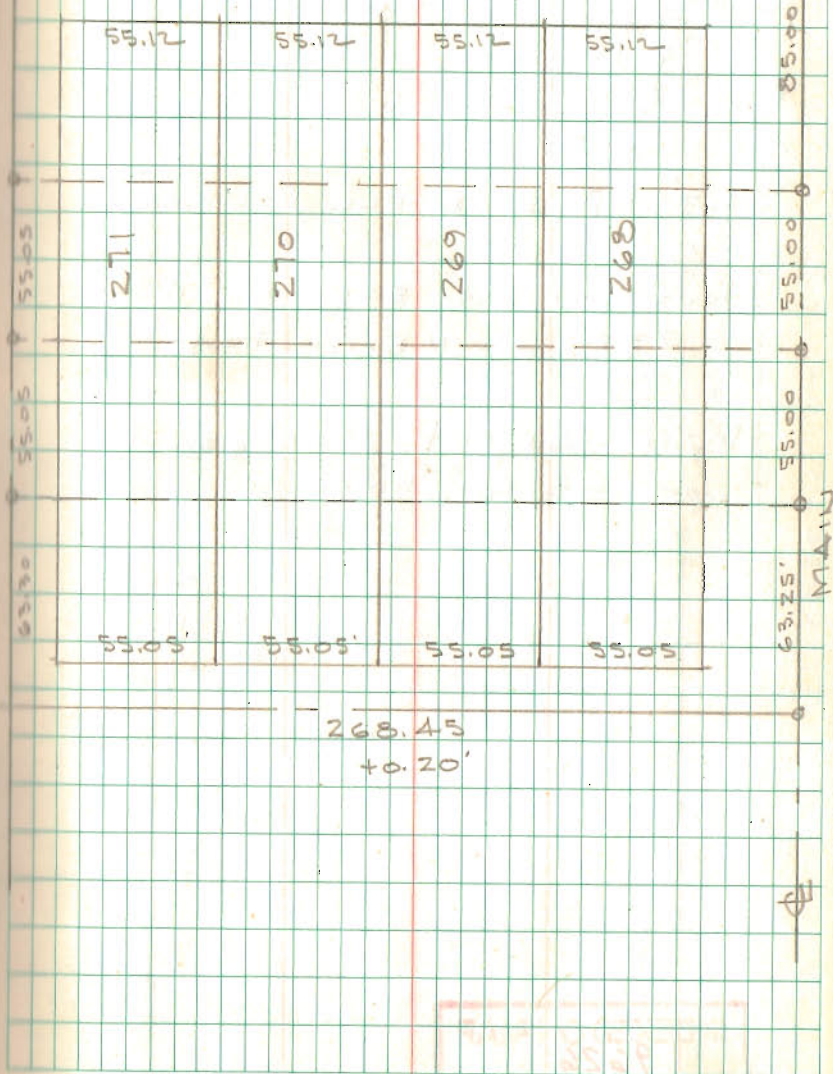 55.12 55.12 55.12 55.12
55.00
55.05
271
270
269
268
55.00
55.05
55.00
63.30
63.25'
MAIN
55.05' 55.05' 55.05 55.05
268.45
+0.20'
℄